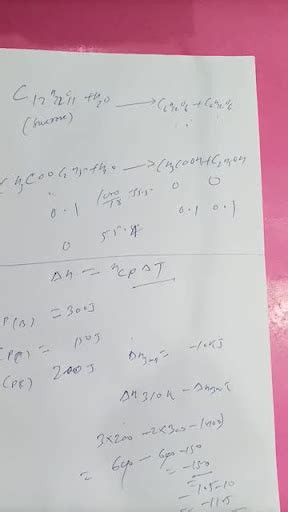 C12H22O11 + H2O → C6H12O6 + C6H12O6
(sucrose)
CH3COOC2H5 + H2O → CH3COOH + C2H5OH
0.1 1000/18 55.5 0 0
0.1 0.1
0 55.4
ΔH = nCpΔT
P(B) = 300J
= 150J
200J
ΔH300 = -10KJ
ΔH310K - ΔH300K
3×200 - 2×300 - 1×150
= 600 - 600 - 150
= -150
= -1.5 - 10
= -11.5